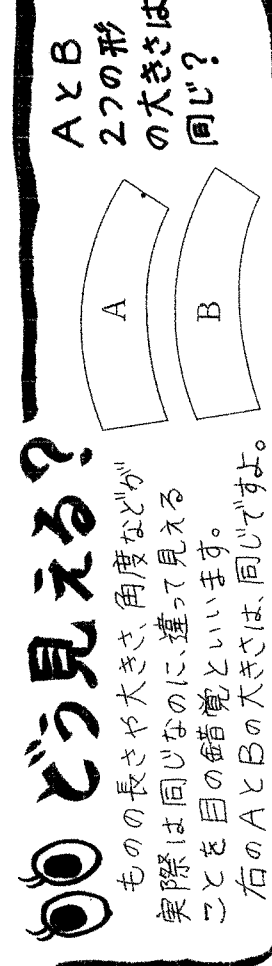 どう見える?
ものの長さや大きさ、角度などが
実際は同じなのに、違って見える
ことを目の錯覚といいます。
右のAとBの大きさは、同じですよ。
AとB
2つの形
の大きさは
同じ?
A
B